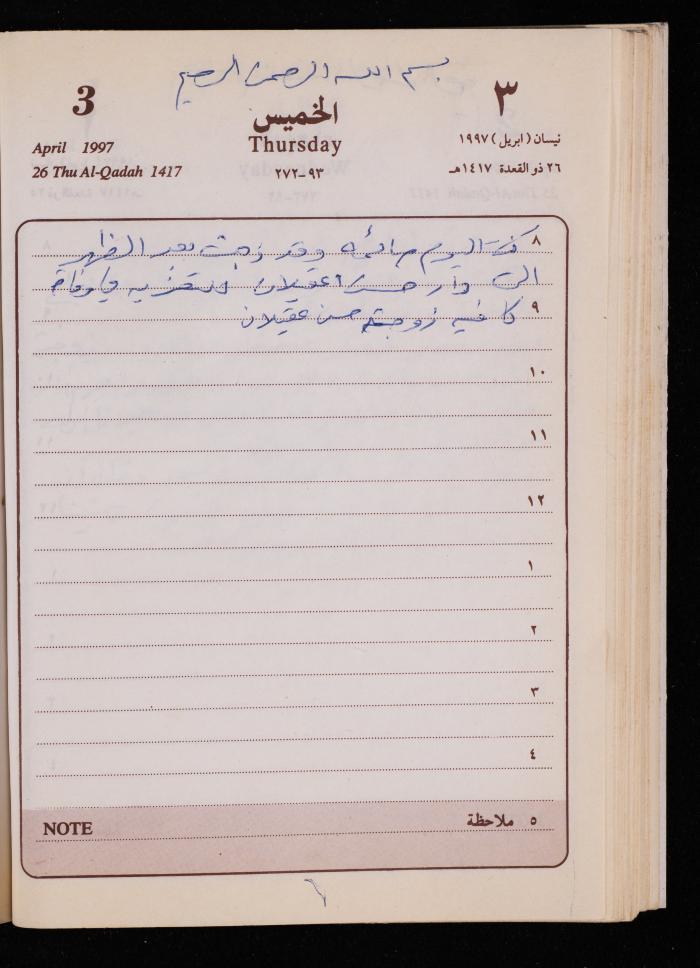 بسم الله الرحمن الرحيم
3
٣
الخميس
Thursday
٩٣-٢٧٢
April 1997
26 Thu Al-Qadah 1417
نيسان (ابريل) ١٩٩٧
٢٦ ذو القعدة ١٤١٧هـ
٨ كنت اليوم صائمه وقد ذهبت بعد الظهر
الى دار حسن عقيلان للتعزيه في وفاة
٩ زوجة حسن عقيلان
١٠
١١
١٢
١
٢
٣
٤
NOTE
٥ ملاحظة